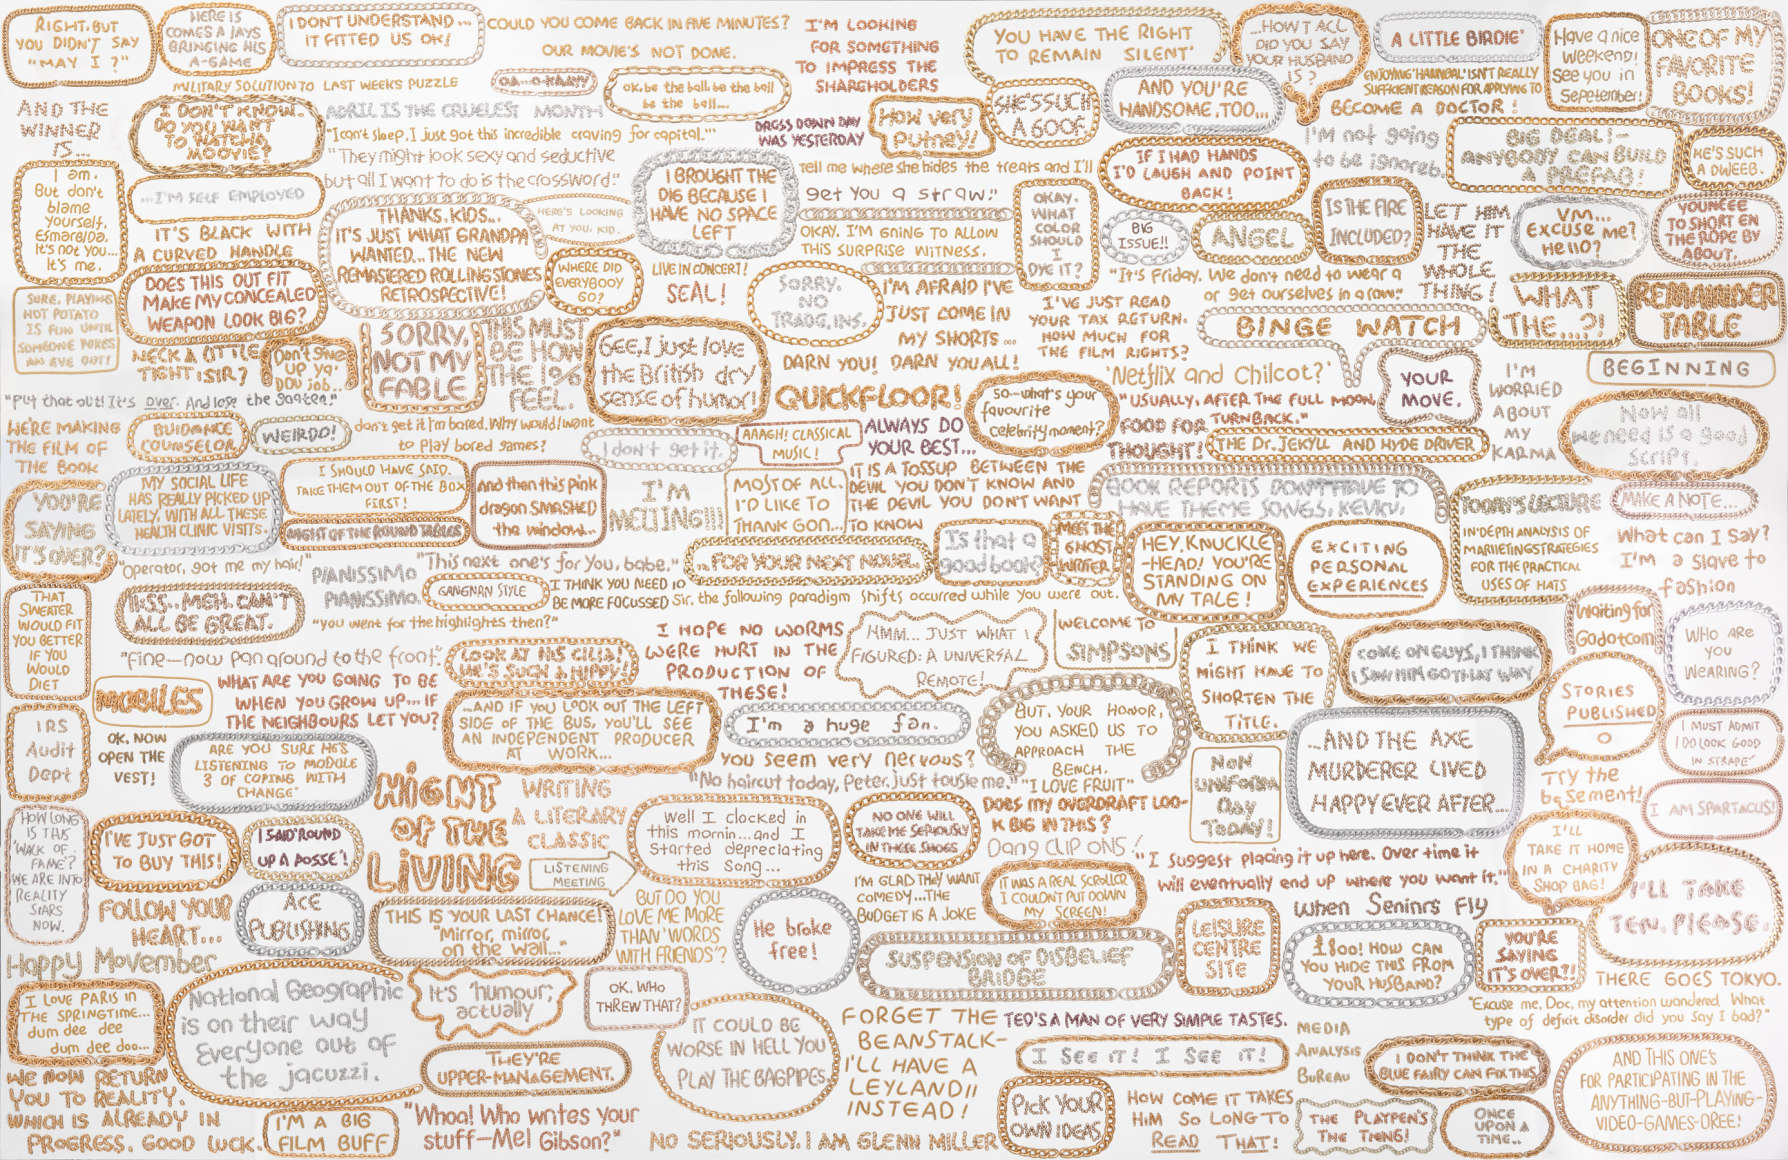 RIGHT, BUT
YOU DIDN'T SAY
"MAY I?"
HERE IS
COMES A JAYS
BRINGING HIS
A-GAME
I DON'T UNDERSTAND...
IT FITTED US OK!
COULD YOU COME BACK IN FIVE MINUTES?
OUR MOVIE'S NOT DONE.
I'M LOOKING
FOR SOMETHING
TO IMPRESS THE
SHAREHOLDERS
YOU HAVE THE RIGHT
TO REMAIN SILENT'
DID YOU SAY
YOUR HUSBAND
IS?
A LITTLE BIRDIE'
Have a nice
weekend!
See you in
September!
ONE OF MY
FAVORITE
BOOKS!
MILITARY SOLUTION TO LAST WEEKS PUZZLE
ok, be the ball, be the ball
be the ball...
ENJOYING 'HANNIBAL' ISN'T REALLY
SUFFICIENT REASON FOR APPLYING TO
BECOME A DOCTOR!
AND THE
WINNER
IS...
I DON'T KNOW.
DO YOU WANT
TO WATCH A
MOOVIE?
APRIL IS THE CRUELEST MONTH
"I can't sleep, I just got this incredible craving for capital."
DRESS DOWN DAY
WAS YESTERDAY
How very
Putney!
SHE'S SUCH
A GOOF.
AND YOU'RE
HANDSOME, TOO...
I'm not going
to be ignored.
BIG DEAL!-
ANYBODY CAN BUILD
A PREFAB!
HE'S SUCH
A DWEEB.
"They might look sexy and seductive
but all I want to do is the crossword."
I am.
But don't
blame
yourself,
Esmarelda,
It's not you...
It's me.
...I'M SELF EMPLOYED
IT'S BLACK WITH
A CURVED HANDLE
THANKS, KIDS...
IT'S JUST WHAT GRANDPA
WANTED... THE NEW
REMASTERED ROLLING STONES
RETROSPECTIVE!
HERE'S LOOKING
AT YOU, KID.
I BROUGHT THE
DIG BECAUSE I
HAVE NO SPACE
LEFT
Tell me where she hides the treats and I'll
get you a straw."
OKAY. I'M GOING TO ALLOW
THIS SURPRISE WITNESS.
OKAY.
WHAT
COLOR
SHOULD
I
DYE IT?
IF I HAD HANDS
I'D LAUGH AND POINT
BACK!
BIG
ISSUE!!
ANGEL
IS THE FIRE
INCLUDED?
LET HIM
HAVE IT
THE
WHOLE
THING!
VM...
EXCUSE me?
Hello?
TO SHORT EN
THE ROPE BY
ABOUT.
SURE, PLAYING
HOT POTATO
IS FUN UNTIL
SOMEONE POKES
AN EYE OUT!
DOES THIS OUT FIT
MAKE MY CONCEALED
WEAPON LOOK BIG?
WHERE DID
EVERYBODY
GO?
LIVE IN CONCERT!
SEAL!
SORRY,
NO
TRADE, INS.
I'M AFRAID I'VE
JUST COME IN
MY SHORTS...
I'VE JUST READ
YOUR TAX RETURN.
HOW MUCH FOR
THE FILM RIGHTS?
"It's Friday. We don't need to wear a
or get ourselves in a row."
BINGE WATCH
WHAT
THE...?!
REMAINDER
TABLE
NECK A LITTLE
TIGHT SIR?
Don't give
up ya'
day job..
SORRY,
NOT MY
FABLE
THIS MUST
BE HOW
THE 1%
FEEL.
Gee, I just love
the British dry
sense of humor!
DARN YOU! DARN YOU ALL!
QUICKFLOOR!
So-what's your
favourite
Celebrity moment?
'Netflix and Chilcot?'
"USUALLY, AFTER THE FULL MOON,
TURN BACK."
YOUR
MOVE.
I'M
WORRIED
ABOUT
MY
KARMA
BEGINNING
Now all
we need is a good
script.
"Put that out! It's over. And lose the garter."
WE'RE MAKING
THE FILM OF
THE BOOK
GUIDANCE
COUNSELOR
WEIRDO!
don't get it I'm bored. Why would I want
to play board games?
I don't get it.
AAAGH! CLASSICAL
MUSIC!
ALWAYS DO
YOUR BEST...
FOOD FOR
THOUGHT!
THE Dr. JEKYLL AND HYDE DRIVER
YOU'RE
SAYING
IT'S OVER?
MY SOCIAL LIFE
HAS REALLY PICKED UP
LATELY, WITH ALL THESE
HEALTH CLINIC VISITS.
I SHOULD HAVE SAID.
TAKE THEM OUT OF THE BOX
FIRST!
KNIGHT OF THE ROUND TABLES
And then this pink
dragon SMASHED
the window...
I'M
MELTING!!!
MOST OF ALL,
I'D LIKE TO
THANK GON...
IT IS A TOSSUP BETWEEN THE
DEVIL YOU DON'T KNOW AND
THE DEVIL YOU DON'T WANT
TO KNOW
BOOK REPORTS DON'T HAVE TO
HAVE THEME SONGS, KEVIN.
TODAY'S LECTURE
IN-DEPTH ANALYSIS OF
MARKETING STRATEGIES
FOR THE PRACTICAL
USES OF HATS
MAKE A NOTE...
What can I say?
I'm a slave to
fashion
"Operator, get me my hair!"
PIANISSIMO
PIANISSIMO.
"This next one's for you, babe."
...FOR YOUR NEXT NOVEL.
Is that a
good book?
MEET THE
GHOST
WRITER
HEY, KNUCKLE
-HEAD! YOU'RE
STANDING ON
MY TALE!
EXCITING
PERSONAL
EXPERIENCES
THAT
SWEATER
WOULD FIT
YOU BETTER
IF YOU
WOULD
DIET
ALL BE GREAT.
GANGNAN STYLE
I THINK YOU NEED TO
BE MORE FOCUSSED
Sir, the following paradigm shifts occurred while you were out.
"you went for the highlights then?"
"Fine-now pan around to the front."
LOOK AT HIS CILIA!
HE'S SUCH A HIPPY!
I HOPE NO WORMS
WERE HURT IN THE
PRODUCTION OF
THESE!
HMM... JUST WHAT I
FIGURED: A UNIVERSAL
REMOTE!
WELCOME TO
SIMPSONS
I THINK WE
MIGHT HAVE TO
SHORTEN THE
TITLE.
COME ON GUYS, I THINK
I SAW HIM GO THAT WAY
Waiting for
Godotcom
WHO ARE
YOU
WEARING?
MOBILES
WHAT ARE YOU GOING TO BE
WHEN YOU GROW UP... IF
THE NEIGHBOURS LET YOU?
...AND IF YOU LOOK OUT THE LEFT
SIDE OF THE BUS, YOU'LL SEE
AN INDEPENDENT PRODUCER
AT WORK...
I'm a huge fan.
You seem very nervous?
BUT, YOUR HONOR,
YOU ASKED US TO
APPROACH THE
BENCH.
STORIES
PUBLISHED
0
IRS
Audit
Dept
OK, NOW
OPEN THE
VEST!
ARE YOU SURE HE'S
LISTENING TO MODULE
3 OF COPING WITH
CHANGE"
NIGHT
OF THE
LIVING
WRITING
A LITERARY
CLASSIC
"No haircut today, Peter, just tousle me."
"I LOVE FRUIT"
NON
UNIFORM
DAY
TODAY!
...AND THE AXE
MURDERER LIVED
HAPPY EVER AFTER...
I MUST ADMIT
I DO LOOK GOOD
IN STRAPE'
Try the
basement!
HOW LONG
IS THIS
'WALK OF
FAME'?
WE ARE INTO
REALITY
STARS
NOW.
I'VE JUST GOT
TO BUY THIS!
I SAID 'ROUND
UP A POSSE'!
LISTENING
MEETING
Well I clocked in
this mornin...and I
started depreciating
this song...
NO ONE WILL
TAKE ME SERIOUSLY
IN THESE SHOES
DOES MY OVERDRAFT LOO-
K BIG IN THIS?
Dang CLIP ONS!
"I suggest placing it up here. Over time it
will eventually end up where you want it."
I'LL
TAKE IT HOME
IN A CHARITY
SHOP BAG!
I AM SPARTACUS!
FOLLOW YOUR
HEART...
ACE
PUBLISHING
THIS IS YOUR LAST CHANCE!
"Mirror, mirror,
on the wall..."
BUT DO YOU
LOVE ME MORE
THAN 'WORDS
WITH FRIENDS'?
He broke
free!
I'M GLAD THEY WANT
COMEDY...THE
BUDGET IS A JOKE
IT WAS A REAL SCROLLER
I COULDN'T PUT DOWN
MY SCREEN!
LEISURE
CENTRE
SITE
When Seninrs Fly
£800! HOW CAN
YOU HIDE THIS FROM
YOUR HUSBAND?
YOU'RE
SAYING
IT'S OVER?!
I'LL TAKE
TEN, PLEASE.
Happy Movember
SUSPENSION OF DISBELIEF
BRIDGE
I LOVE PARIS IN
THE SPRINGTIME...
dum dee dee
dum dee doo...
National Geographic
is on their way
Everyone out of
the jacuzzi.
It's 'humour,'
actually
OK. WHO
THREW THAT?
IT COULD BE
WORSE IN HELL YOU
PLAY THE BAGPIPES.
FORGET THE
BEANSTALK-
I'LL HAVE A
LEYLANDII
INSTEAD!
TED'S A MAN OF VERY SIMPLE TASTES.
I SEE IT! I SEE IT!
MEDIA
ANALYSIS
BUREAU
THERE GOES TOKYO.
"Excuse me, Doc, my attention wandered. What
type of deficit disorder did you say I had?"
WE NOW RETURN
YOU TO REALITY.
WHICH IS ALREADY IN
PROGRESS. GOOD LUCK.
I'M A BIG
FILM BUFF
THEY'RE
UPPER-MANAGEMENT.
"Whoa! Who writes your
stuff-Mel Gibson?"
NO SERIOUSLY. I AM GLENN MILLER
PICK YOUR
OWN IDEAS
HOW COME IT TAKES
HIM SO LONG TO
READ THAT!
I DON'T THINK THE
BLUE FAIRY CAN FIX THIS
THE PLAYPEN'S
THE THING!
ONCE
UPON A
TIME..
AND THIS ONE'S
FOR PARTICIPATING IN THE
ANYTHING-BUT-PLAYING-
VIDEO-GAMES-OREE!